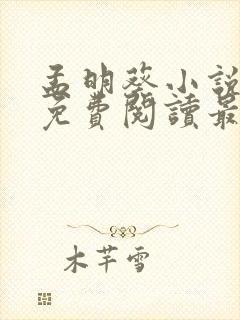 孟明葵小說
免費閱讀最
木芊雪